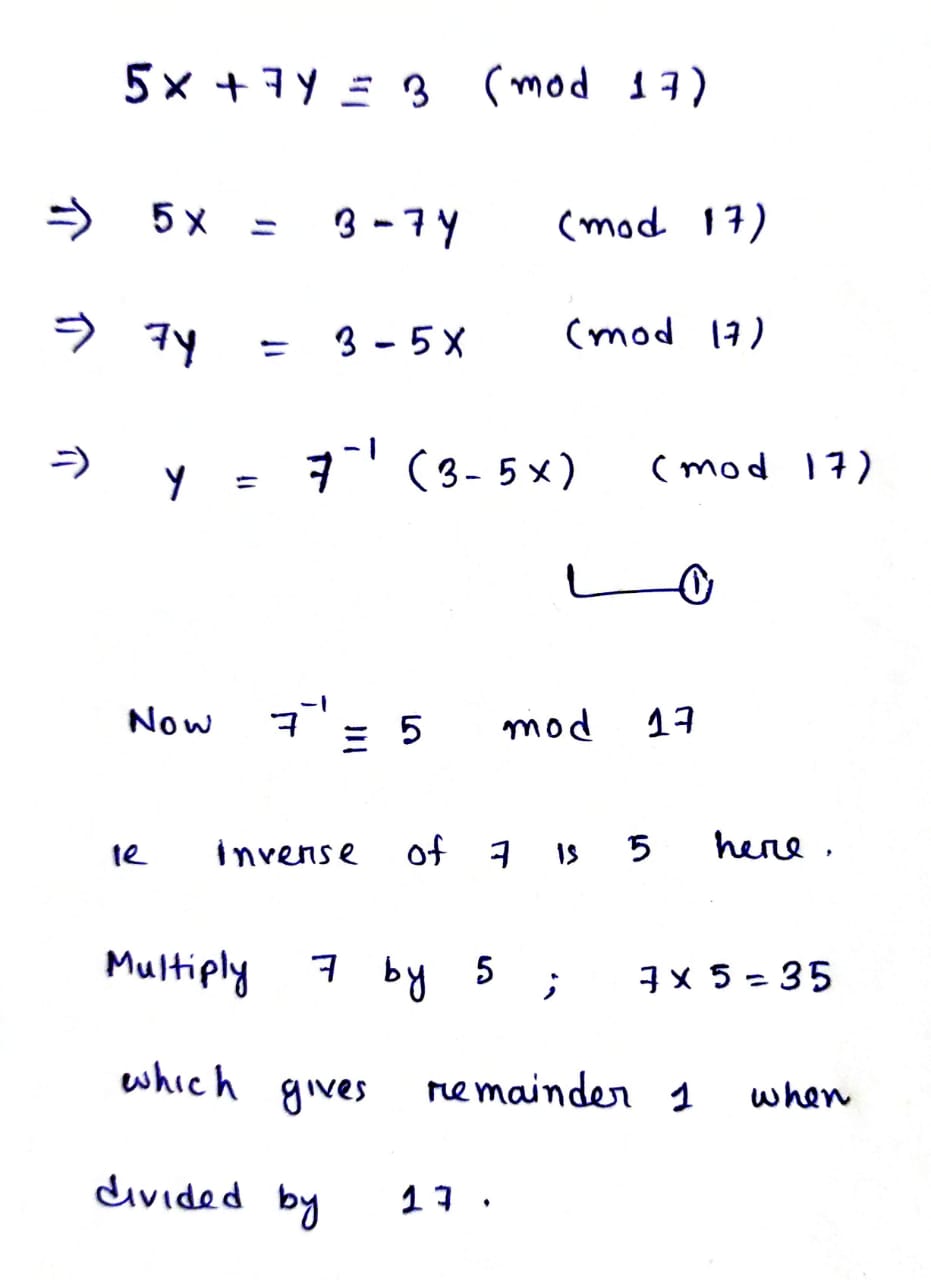 5x + 7y ≡ 3 (mod 17)
⇒ 5x = 3 - 7y (mod 17)
⇒ 7y = 3 - 5x (mod 17)
⇒ y = 7⁻¹ (3 - 5x) (mod 17)
①
Now 7⁻¹ ≡ 5 mod 17
ie inverse of 7 is 5 here.
Multiply 7 by 5 ; 7 × 5 = 35
which gives remainder 1 when
divided by 17.